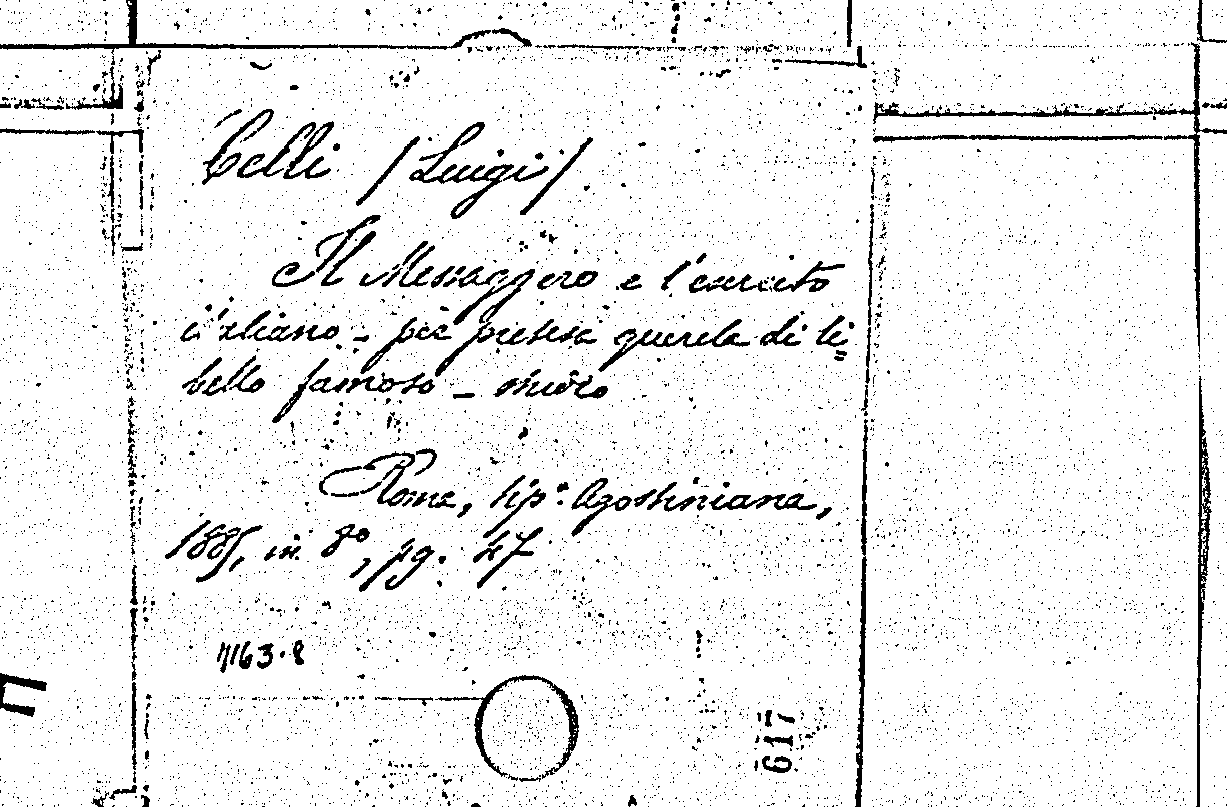 Celli (Luigi)
Il Messaggero e l'esercito
italiano - per pretesa querela di li=
bello famoso -
Roma, tip.ª Agostiniana,
1885, in 8º, pg. 47
1163.8
617